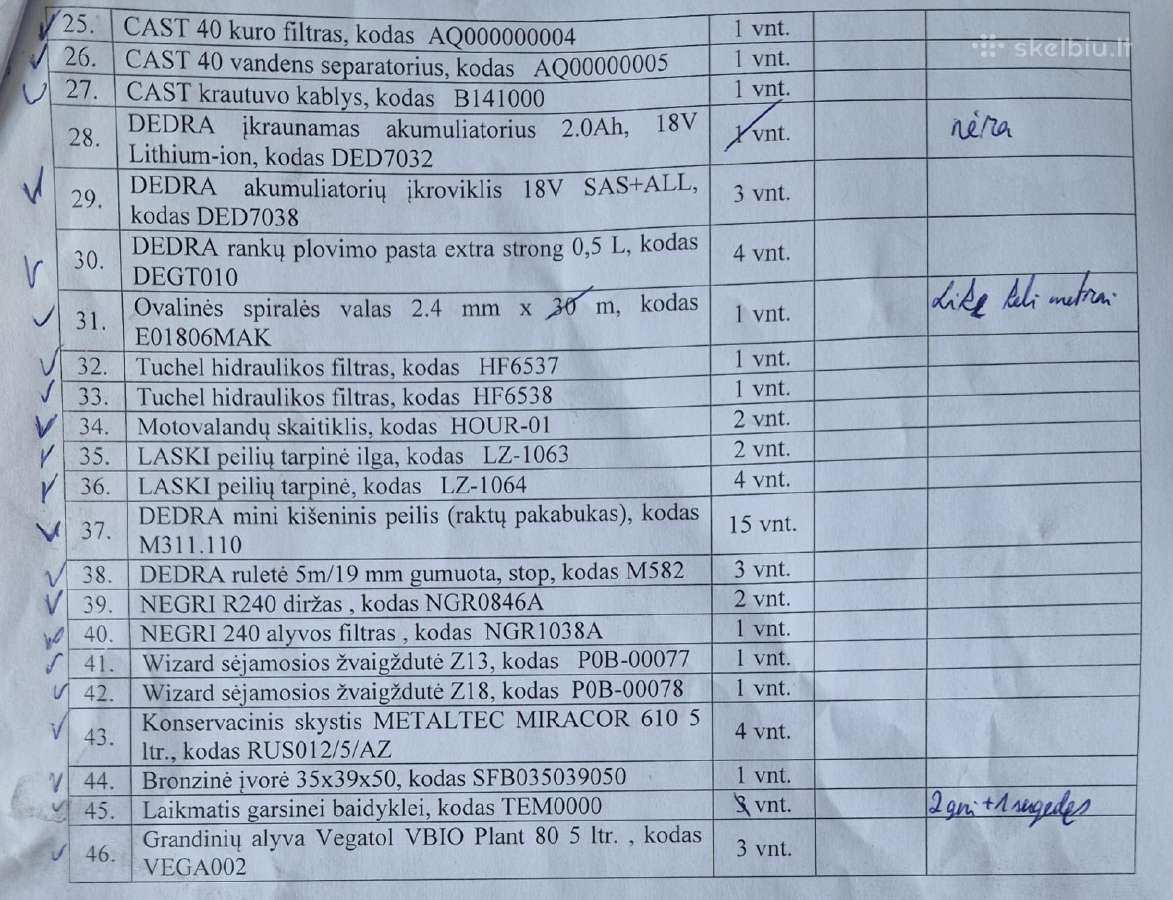 25. CAST 40 kuro filtras, kodas AQ000000004 1 vnt.
skelbiu.lt
26. CAST 40 vandens separatorius, kodas AQ00000005 1 vnt.
27. CAST krautuvo kablys, kodas B141000 1 vnt.
28. DEDRA įkraunamas akumuliatorius 2.0Ah, 18V
Lithium-ion, kodas DED7032 1 vnt. nėra
29. DEDRA akumuliatorių įkroviklis 18V SAS+ALL,
kodas DED7038 3 vnt.
30. DEDRA rankų plovimo pasta extra strong 0,5 L, kodas
DEGT010 4 vnt.
31. Ovalinės spiralės valas 2.4 mm x 30 m, kodas
E01806MAK 1 vnt. Likę keli metrai
32. Tuchel hidraulikos filtras, kodas HF6537 1 vnt.
33. Tuchel hidraulikos filtras, kodas HF6538 1 vnt.
34. Motovalandų skaitiklis, kodas HOUR-01 2 vnt.
35. LASKI peilių tarpinė ilga, kodas LZ-1063 2 vnt.
36. LASKI peilių tarpinė, kodas LZ-1064 4 vnt.
37. DEDRA mini kišeninis peilis (raktų pakabukas), kodas
M311.110 15 vnt.
38. DEDRA ruletė 5m/19 mm gumuota, stop, kodas M582 3 vnt.
39. NEGRI R240 diržas , kodas NGR0846A 2 vnt.
40. NEGRI 240 alyvos filtras , kodas NGR1038A 1 vnt.
41. Wizard sėjamosios žvaigždutė Z13, kodas P0B-00077 1 vnt.
42. Wizard sėjamosios žvaigždutė Z18, kodas P0B-00078 1 vnt.
43. Konservacinis skystis METALTEC MIRACOR 610 5
ltr., kodas RUS012/5/AZ 4 vnt.
44. Bronzinė įvorė 35x39x50, kodas SFB035039050 1 vnt.
45. Laikmatis garsinei baidyklei, kodas TEM0000 3 vnt. 2 geri + 1 sugedęs
46. Grandinių alyva Vegatol VBIO Plant 80 5 ltr. , kodas
VEGA002 3 vnt.